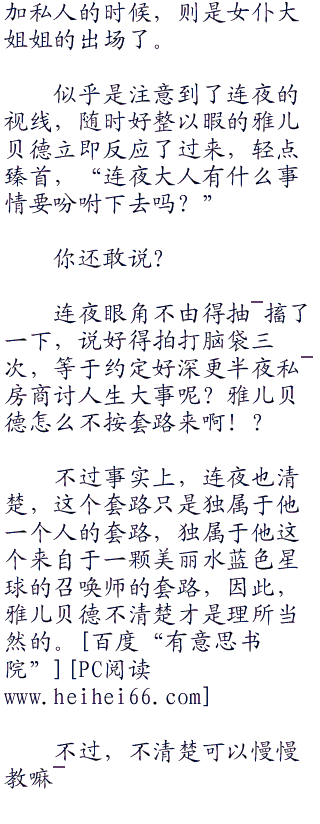 加私人的时候，则是女仆大
姐姐的出场了。
似乎是注意到了连夜的
视线，随时好整以暇的雅儿
贝德立即反应了过来，轻点
臻首，“连夜大人有什么事
情要吩咐下去吗？”
你还敢说？
连夜眼角不由得抽¯搐了
一下，说好得拍打脑袋三
次，等于约定好深更半夜私¯
房商讨人生大事呢？雅儿贝
德怎么不按套路来啊！？
不过事实上，连夜也清
楚，这个套路只是独属于他
一个人的套路，独属于他这
个来自于一颗美丽水蓝色星
球的召唤师的套路，因此，
雅儿贝德不清楚才是理所当
然的。[百度“有意思书
院”][PC阅读
www.heihei66.com]
不过，不清楚可以慢慢
教嘛¯